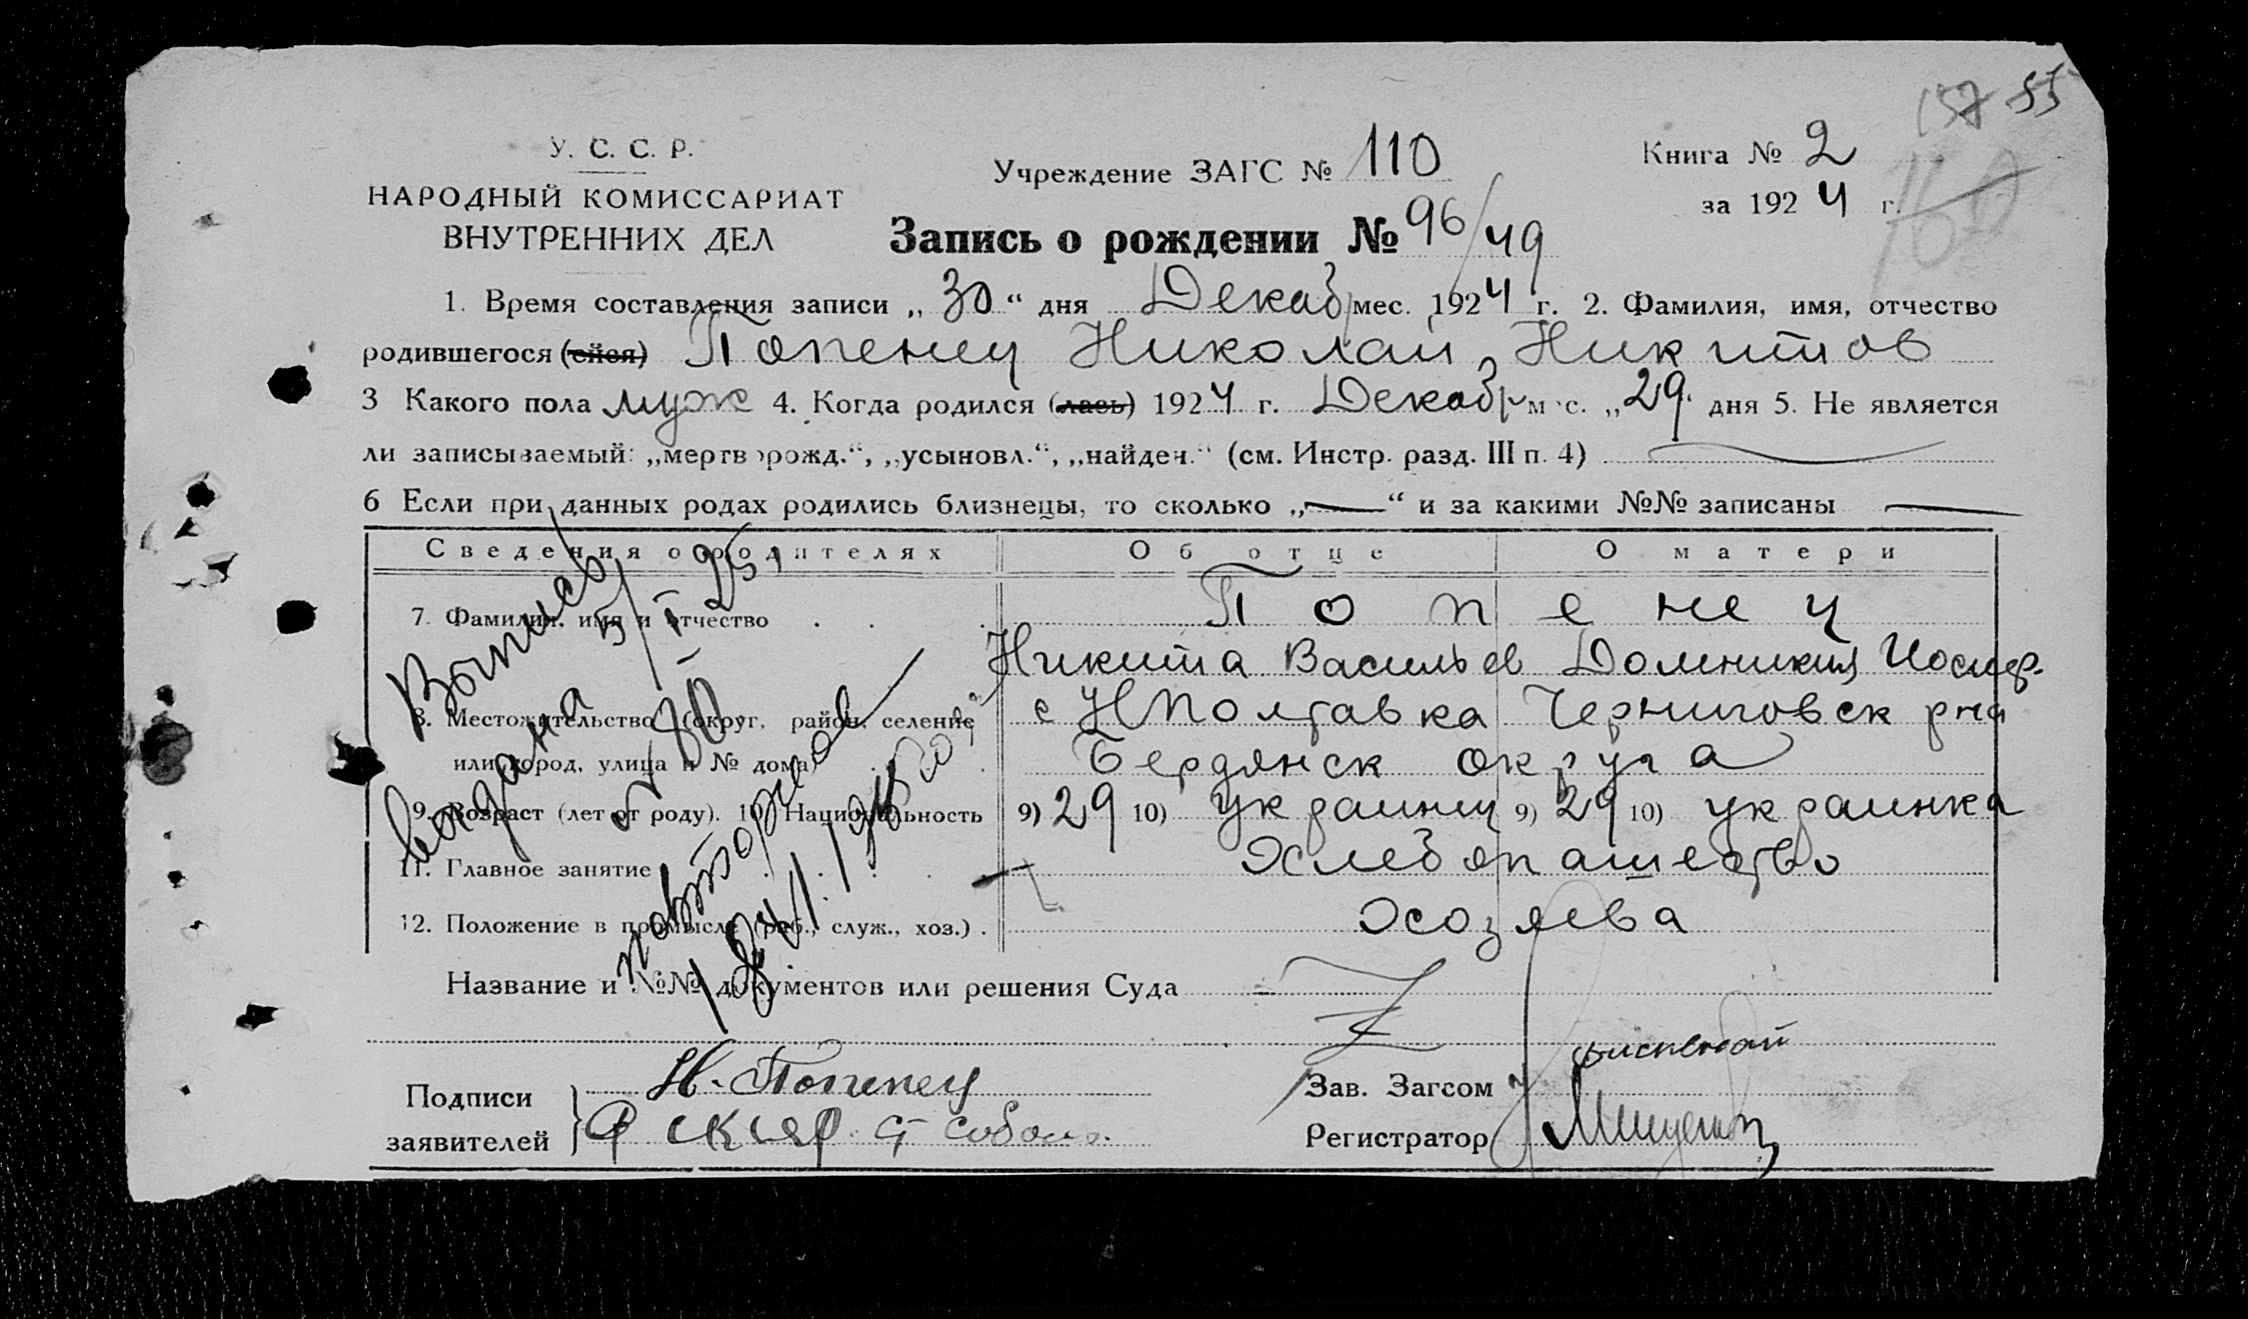 157 55
160
У. С. С. Р.
НАРОДНЫЙ КОМИССАРИАТ
ВНУТРЕННИХ ДЕЛ
Учреждение ЗАГС № 110
Книга № 2
за 1924 г.
Запись о рождении № 96/49
1. Время составления записи „30“ дня Декабр мес. 1924 г. 2. Фамилия, имя, отчество
родившегося (ейся) Попенец Николай Никитов
3 Какого пола муж 4. Когда родился (лась) 1924 г. Декабр мес. „29“ дня 5. Не является
ли записываемый: „мертворожд.“, „усыновл.“, „найден.“ (см. Инстр. разд. III п. 4)
6 Если при данных родах родились близнецы, то сколько „—“ и за какими №№ записаны —
Сведения о родителях Об отце О матери
7. Фамилия, имя и отчество Попенец
Никита Васильев Домникия Иосиф.
8. Местожительство (округ, район, селение с НПолтавка Черниговск рна
или город, улица и № дома) Бердянск округа
9. Возраст (лет от роду). 10. Национальность 9) 29 10) украинец 9) 29 10) украинка
11. Главное занятие Хлебопашество
12. Положение в промысле (раб., служ., хоз.) Хозяева
Выпись
выдана 5/I 25
№ 80
повторно
18.VI.194
Название и №№ документов или решения Суда
Подписи заявителей Н. Попенец
Зав. Загсом
Регистратор